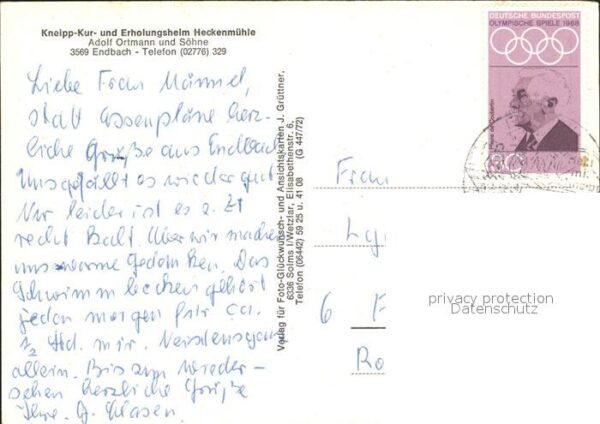 Kneipp-Kur- und Erholungsheim Heckenmühle
Adolf Ortmann und Söhne
3569 Endbach - Telefon (02776) 329
Liebe Frau
statt herz-
liche Grüße aus Endbach
Uns gefällt es wieder gut
Nur leider ist es z. Zt
recht kalt. Aber wir machen
uns warme Gedanken. Das
Schwimmbecken gehört
jeden morgen für ca.
1/2 Std. mir.
allein. Bis zum Wieder-
sehen herzliche Grüße
Ihre
Verlag für Foto-Glückwunsch- und Ansichtskarten J. Grüttner,
6336 Solms I/Wetzlar, Elisabethenstr. 6,
Telefon (06442) 59 25 u. 41 08 (G 447/72)
DEUTSCHE BUNDESPOST
OLYMPISCHE SPIELE 1968
Pierre de Coubertin
Frau
6 F
Ro
privacy protection
Datenschutz